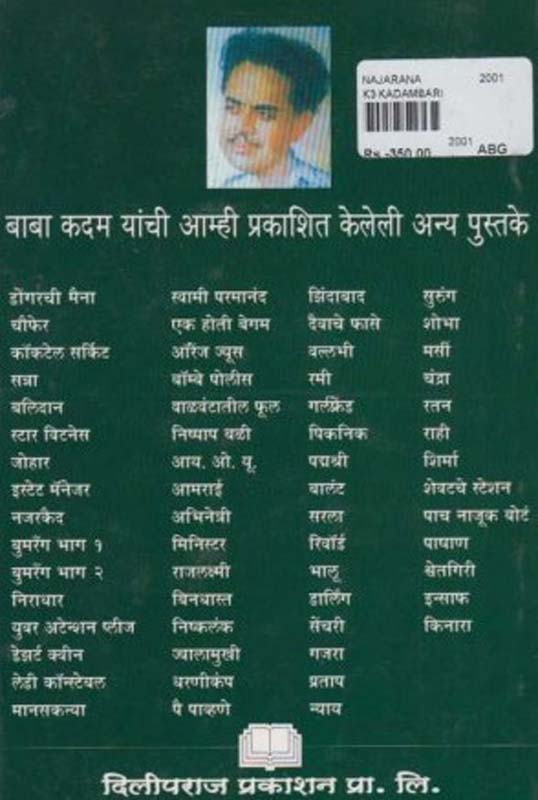 NAJARANA 2001
K3 KADAMBARI
2001
Rs.-350.00 ABG
बाबा कदम यांची आम्ही प्रकाशित केलेली अन्य पुस्तके
डोंगरची मैना स्वामी परमानंद झिंदाबाद सुरुंग
चीफेर एक होती बेगम दैवाचे फासे शोभा
कॉकटेल सर्किट ऑरेंज ज्यूस वल्लभी मर्सी
सन्ना बॉम्बे पोलीस रमी चंद्रा
बलिदान वाळवंटातील फूल गर्लफ्रेंड रतन
स्टार विटनेस निष्पाप बळी पिकनिक राही
जोहार आय. ओ. यू. पद्मश्री शिर्मा
इस्टेट मॅनेजर आमराई बालंट शेवटचे स्टेशन
नजरकैद अभिनेत्री सरला पाच नाजूक बोटं
बुमरँग भाग १ मिनिस्टर रिवॉर्ड पाषाण
बुमरँग भाग २ राजलक्ष्मी भालू श्वेतगिरी
निराधार बिनधास्त डार्लिंग इन्साफ
युवर अटेन्शन प्लीज निष्कलंक सेंचरी किनारा
डेझर्ट क्वीन ज्वालामुखी गजरा
लेडी कॉन्स्टेबल धरणीकंप प्रताप
मानसकन्या पै पाव्हणे न्याय
दिलीपराज प्रकाशन प्रा. लि.